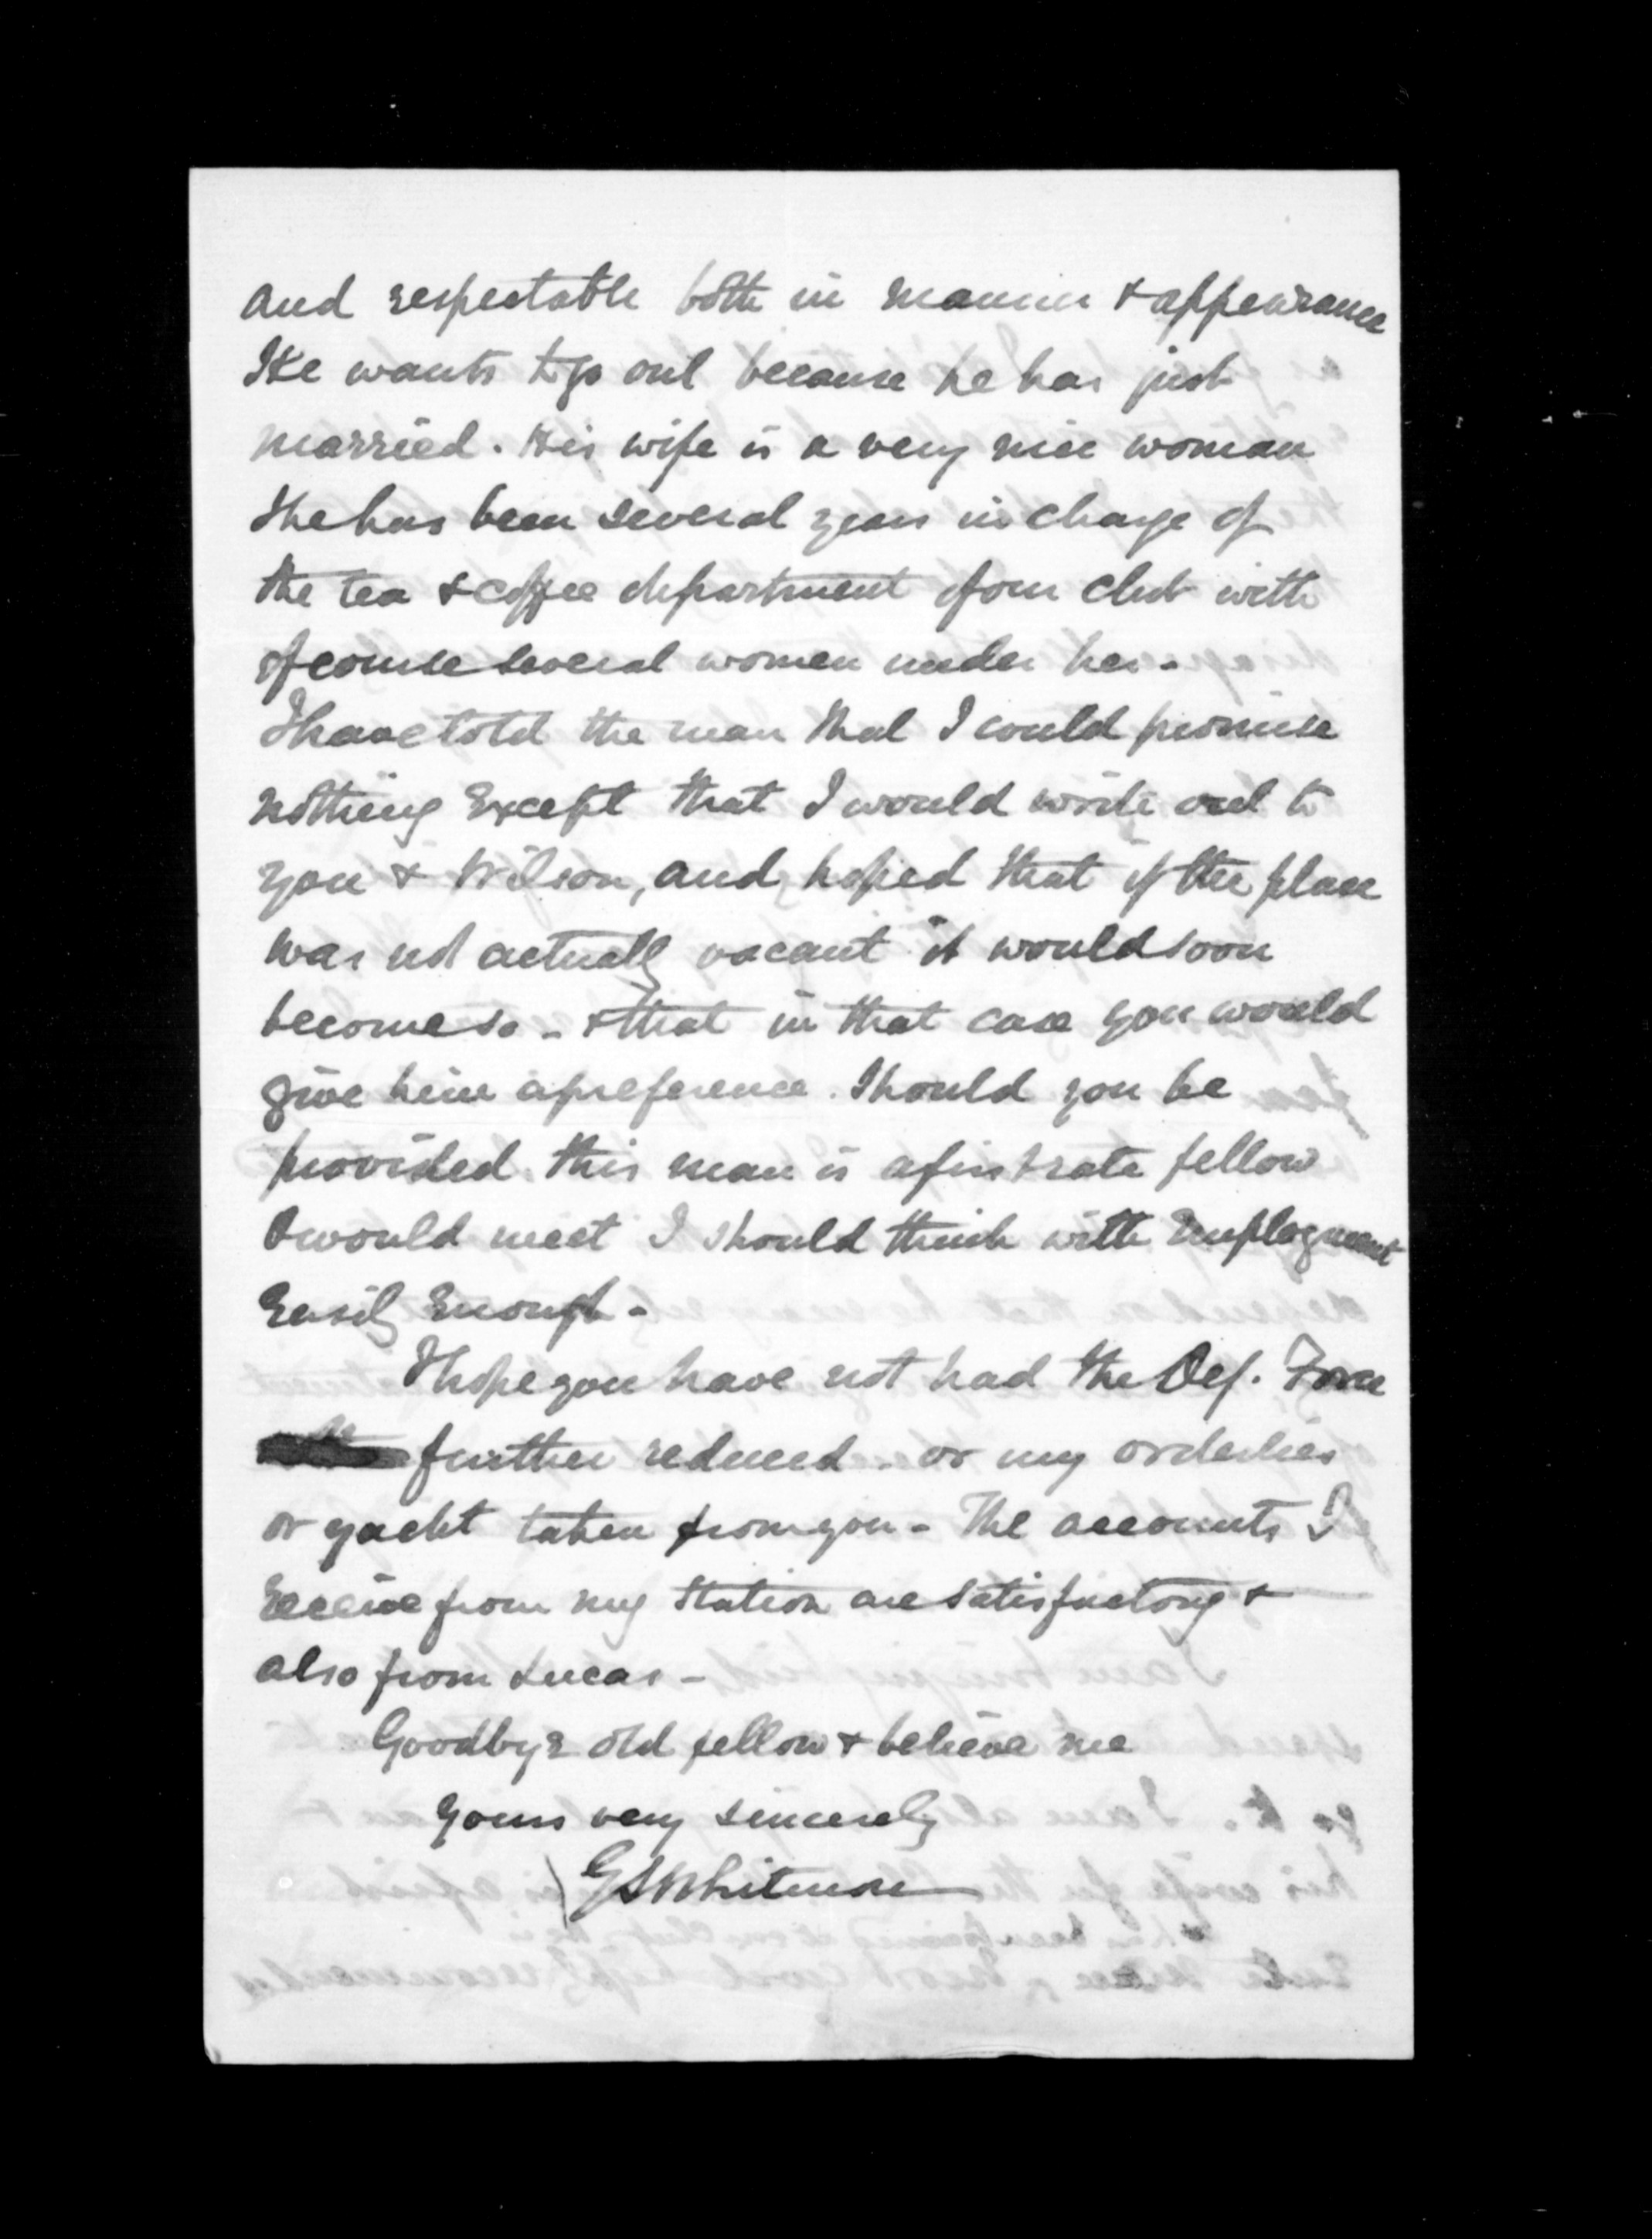 and respectable both in manner & appearance
He wants to go out because he has just
married. His wife is a very nice woman
She has been several years in charge of
the tea & coffee department of our Club with
of course several women under her -
I have told the man that I could promise
nothing Except that I would write out to
you & Wilson, and hoped that if the place
was not actually vacant it would soon
become so - & that in that case you would
give him a preference. Should you be
provided this man is a first rate fellow
& would meet I should think with Employment
Easily Enough -
I hope you have not had the Def. Force
further reduced - or my orderlies
or yacht taken from you - The accounts I
receive from my Station are satisfactory &
also from Lucas -
Goodbye old fellow & believe me
yours very sincerely
G S Whitmore